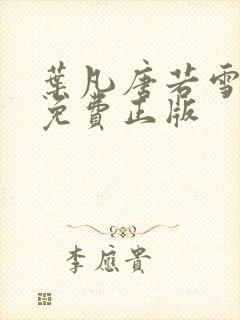 葉凡唐若雪
免費正版
李應貴